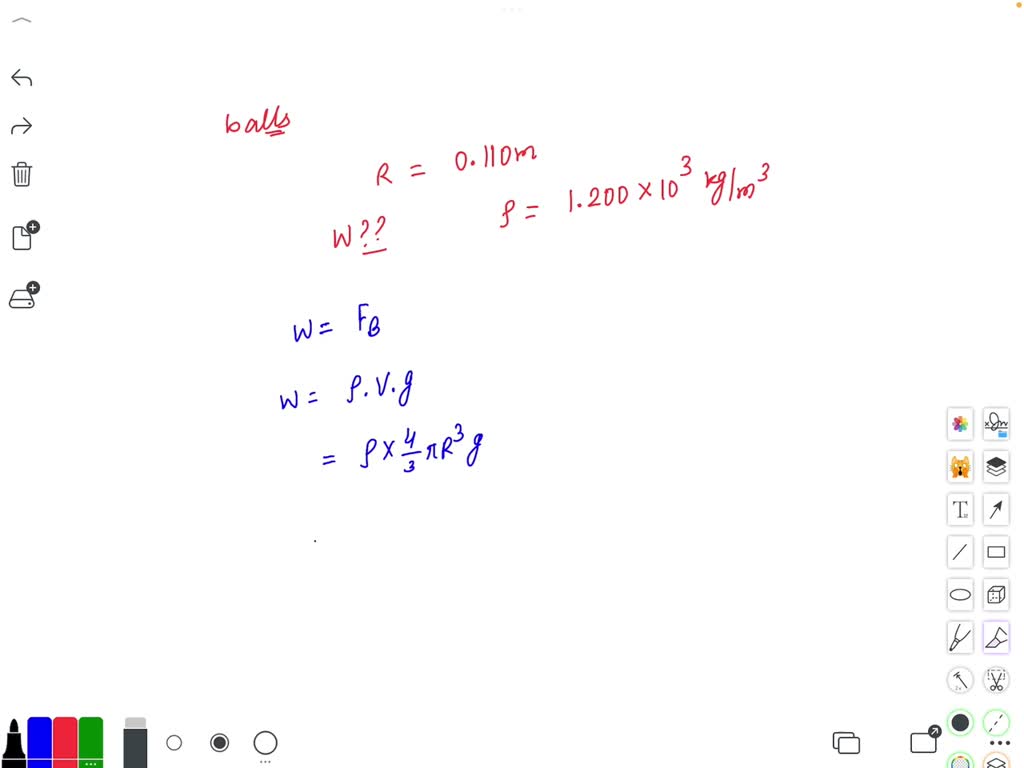 balls
R = 0.110m
W?? ρ = 1.200 × 10³ kg/m³
W = F_B
W = ρ.V.g
= ρ × 4/3 πR³ g